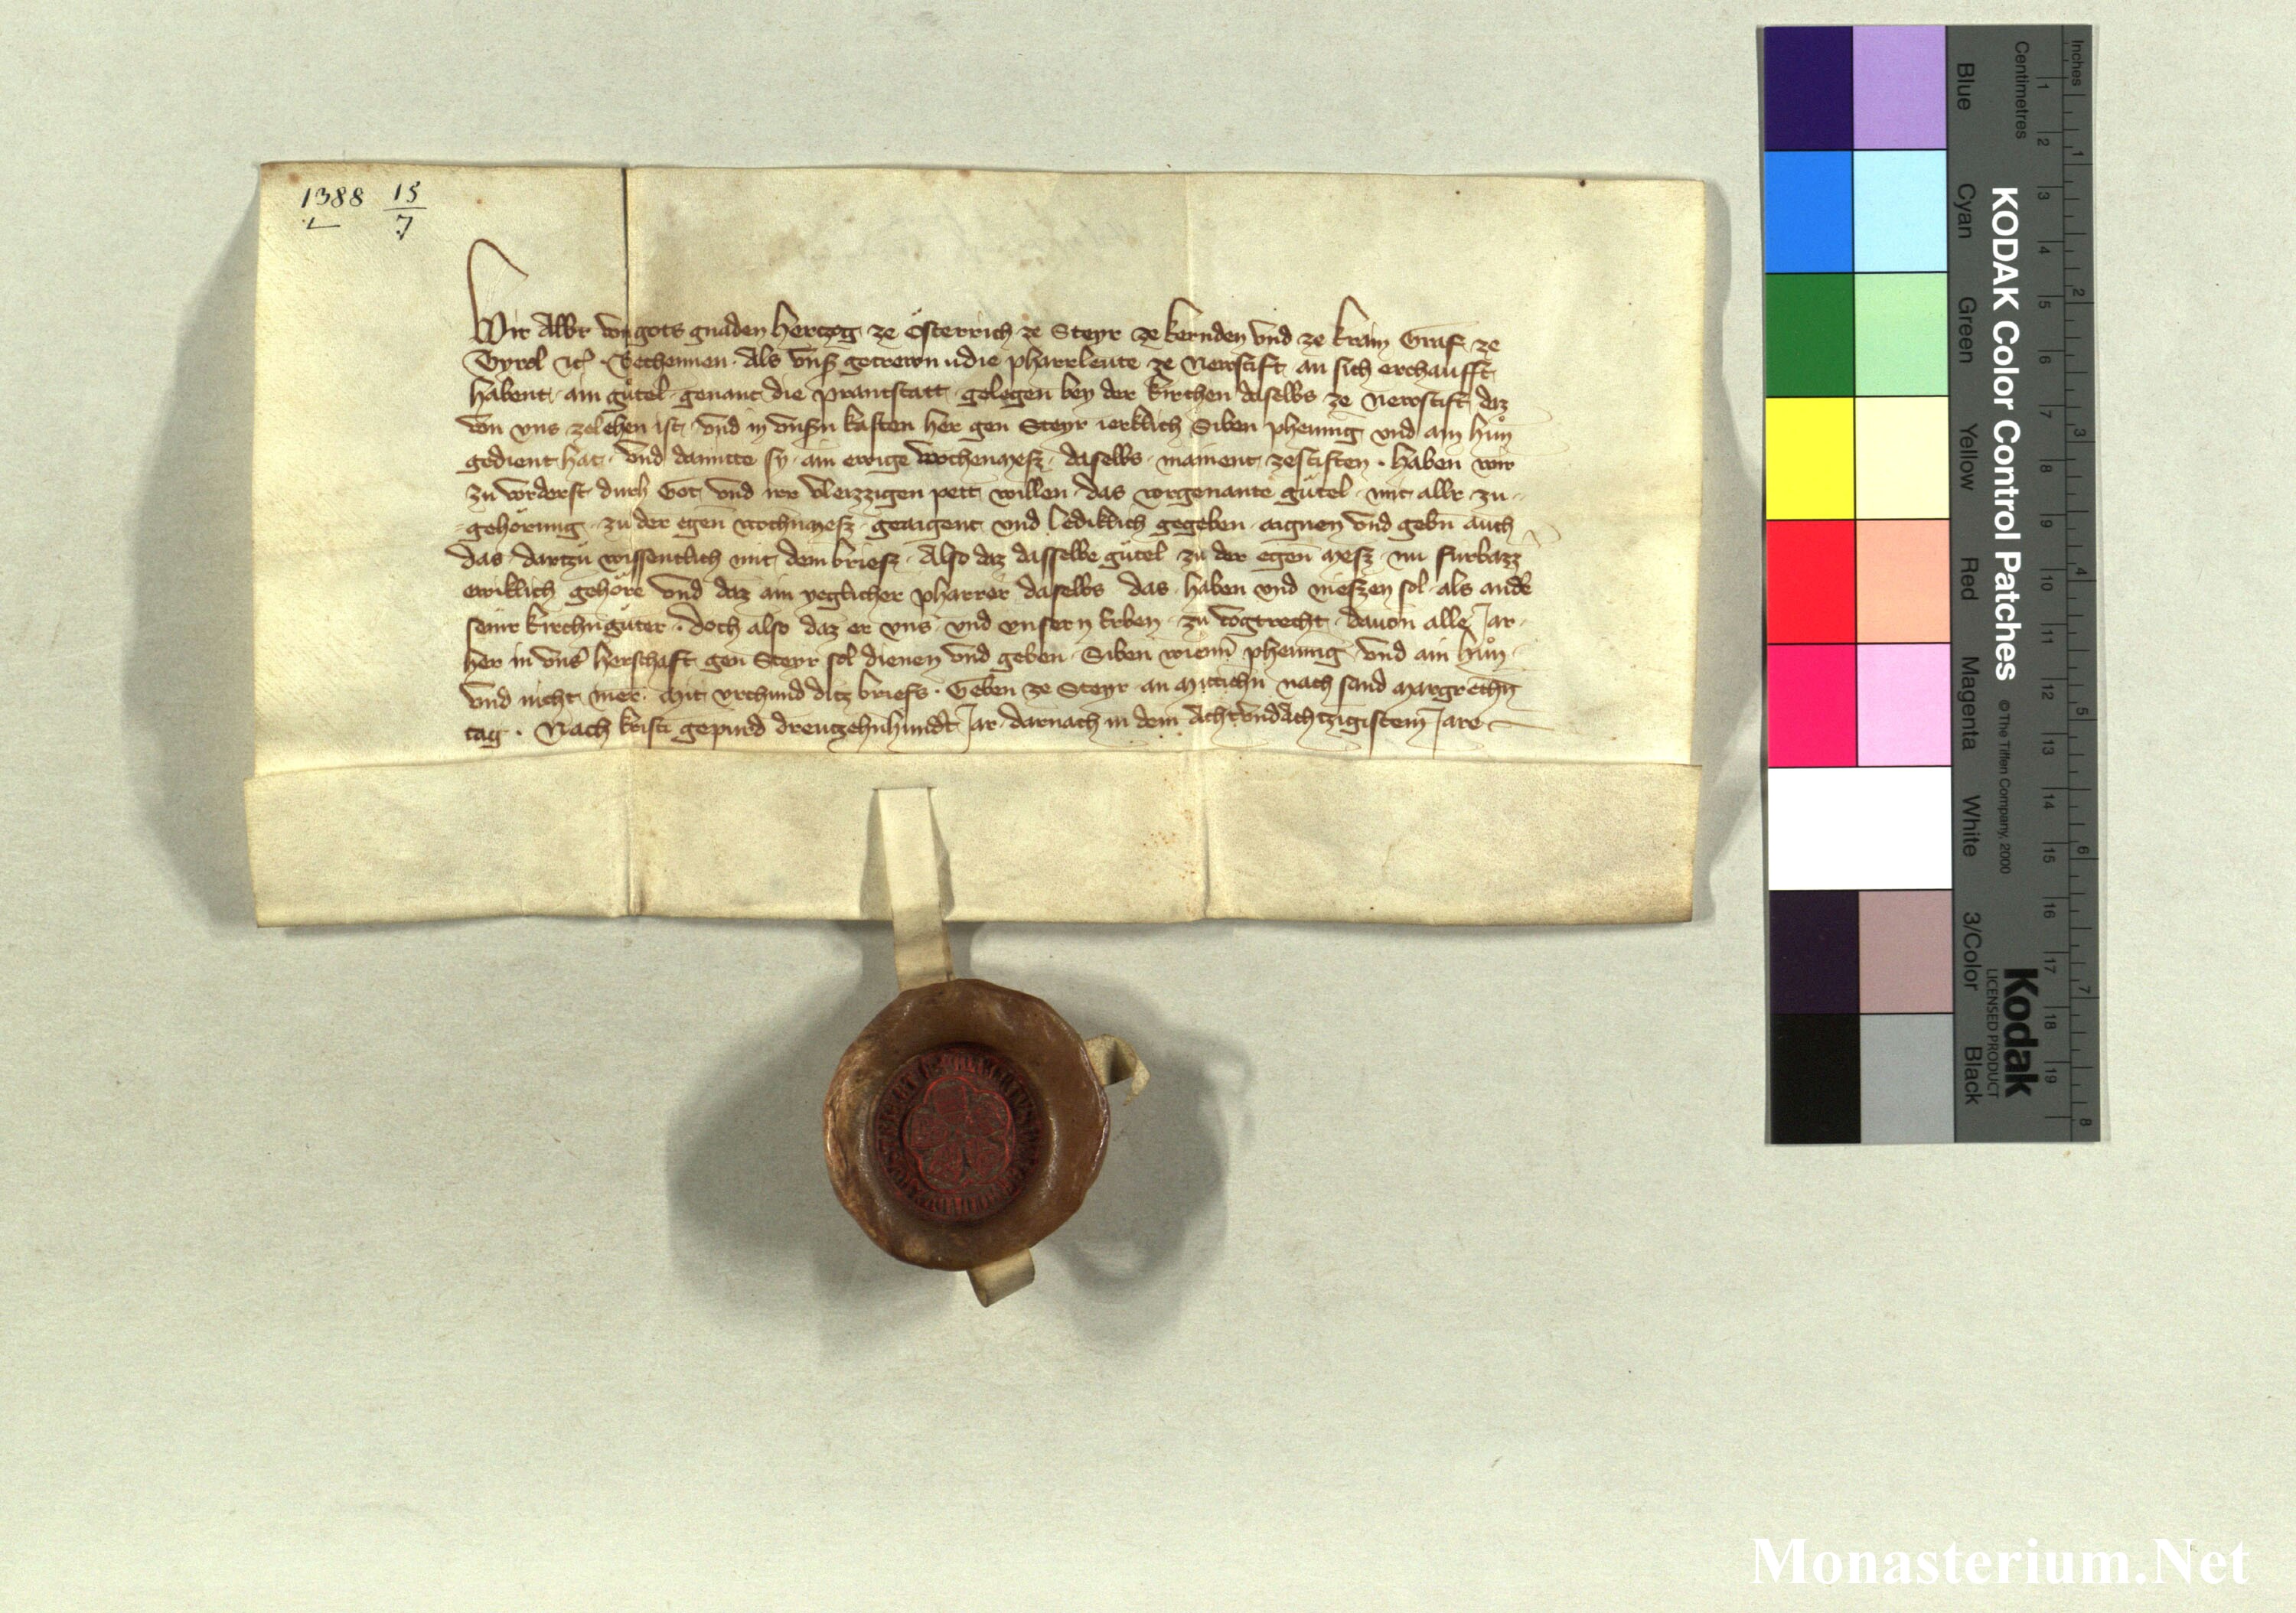 1388 15/7
1
Wir Albr von gots gnaden Hertzog ze Österrich ze Steyr ze kernden vnd ze krain Graf ze
Tyrol etc. Bechennen. Als vnsr getrewn die pharrleute ze Newstift an sich erchaufft
habent. ain gůtel. genant die prantstatt. gelegen bey der kirchen daselbs ze Newstift daz
von vns. zelehen ist. vnd in vnsrn kasten her gen Steyr ierklich Siben phening vnd ain hůn
gedient hat. vnd damitte sy. ain ewige wochenmesz. daselbs. mainent. zestiften. haben wir
zu vordrist durch Got vnd irr vleizzigen pett willen. das vorgenante gůtel. mit allr. zu-
gehörung. zu der egen wochnmesz. geaigent vnd lediklich gegeben. aignen vnd gebn auch
das. dartzů wissentlich mit dem brief. Also daz dasselbe gůtel. zu der egen mesz. nu furbazz
ewiklich gehöre vnd daz ain yeglicher pharrer daselbs das. haben vnd nieszen sol. als andr
seinr kirchngůter. doch also daz er vns. vnd vnsern erben. zu vogtrecht. dauon alle Jar.
her in vnsr herschaft gen Steyr sol dienen vnd geben. Siben wienn phening. vnd ain hůn.
vnd nicht mer. Mit vrchund ditz briefs. Geben ze Steyr an Mittichn nach sand Margrethn
tag. Nach kristi gepurd dreutzehnhundrt Jar. darnach in dem Achtvndachtzigistem Jare
Inches 1 2 3 4 5 6 7 8
Centimetres 1 2 3 4 5 6 7 8 9 10 11 12 13 14 15 16 17 18 19
KODAK Color Control Patches © The Tiffen Company, 2000 Kodak
LICENSED PRODUCT
Blue Cyan Green Yellow Red Magenta White 3/Color Black
Monasterium.Net